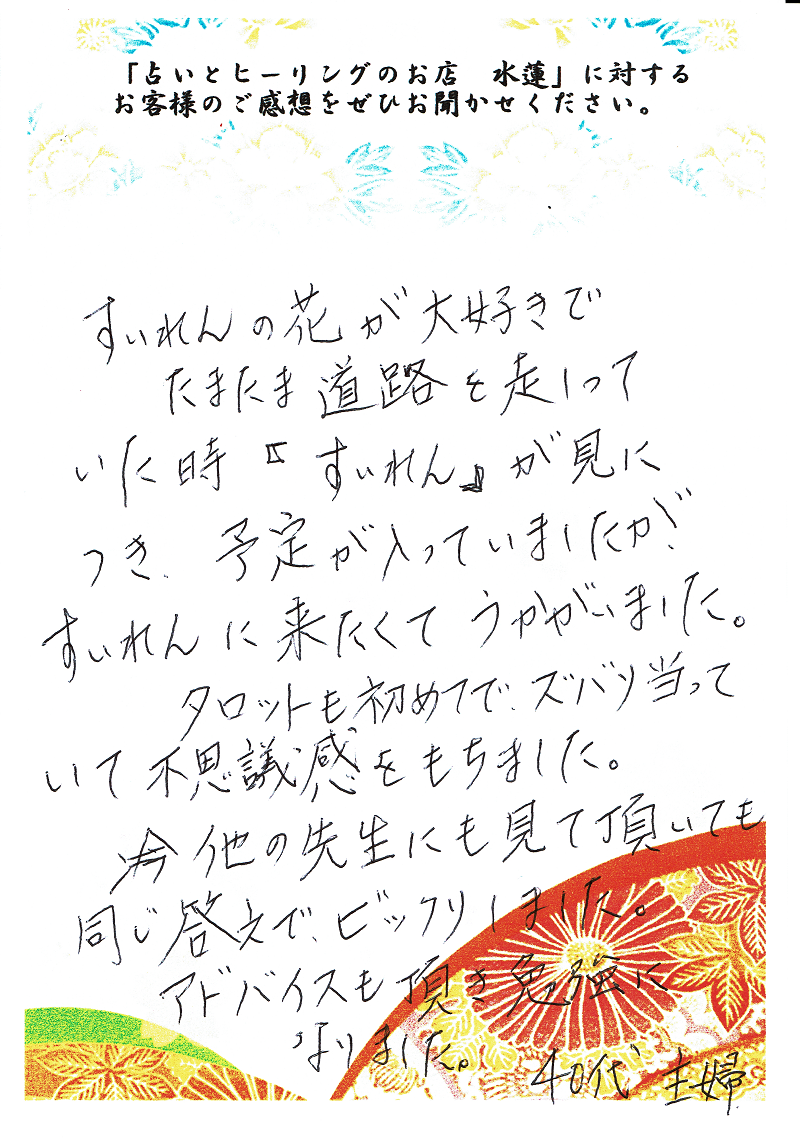 「占いとヒーリングのお店　水蓮」に対する
お客様のご感想をぜひお聞かせください。
すいれんの花が大好きで
たまたま道路を走しって
いた時『すいれん』が見に
つき、予定が入っていましたが、
すいれんに来たくてうかがいました。
タロットも初めてで、ズバリ当って
いて不思議感をもちました。
今他の先生にも見て頂いても
同じ答えで、ビックリしました。
アドバイスも頂き勉強に
なりました。
40代 主婦